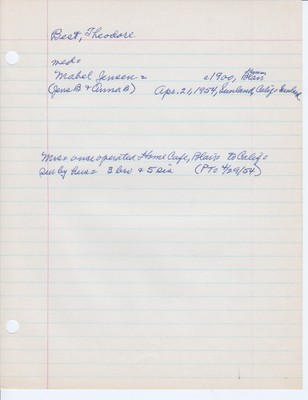 Best, Theodore
med=
Mabel Jensen = c1900, Blair
(Jens B & Anna B) Apr. 21, 1954, Sunland, Calif=
Mrs= once operated Home Cafe, Blair to Calif=
Sur by hus= 3 bro & 5 sis (PT= 4/29/54)